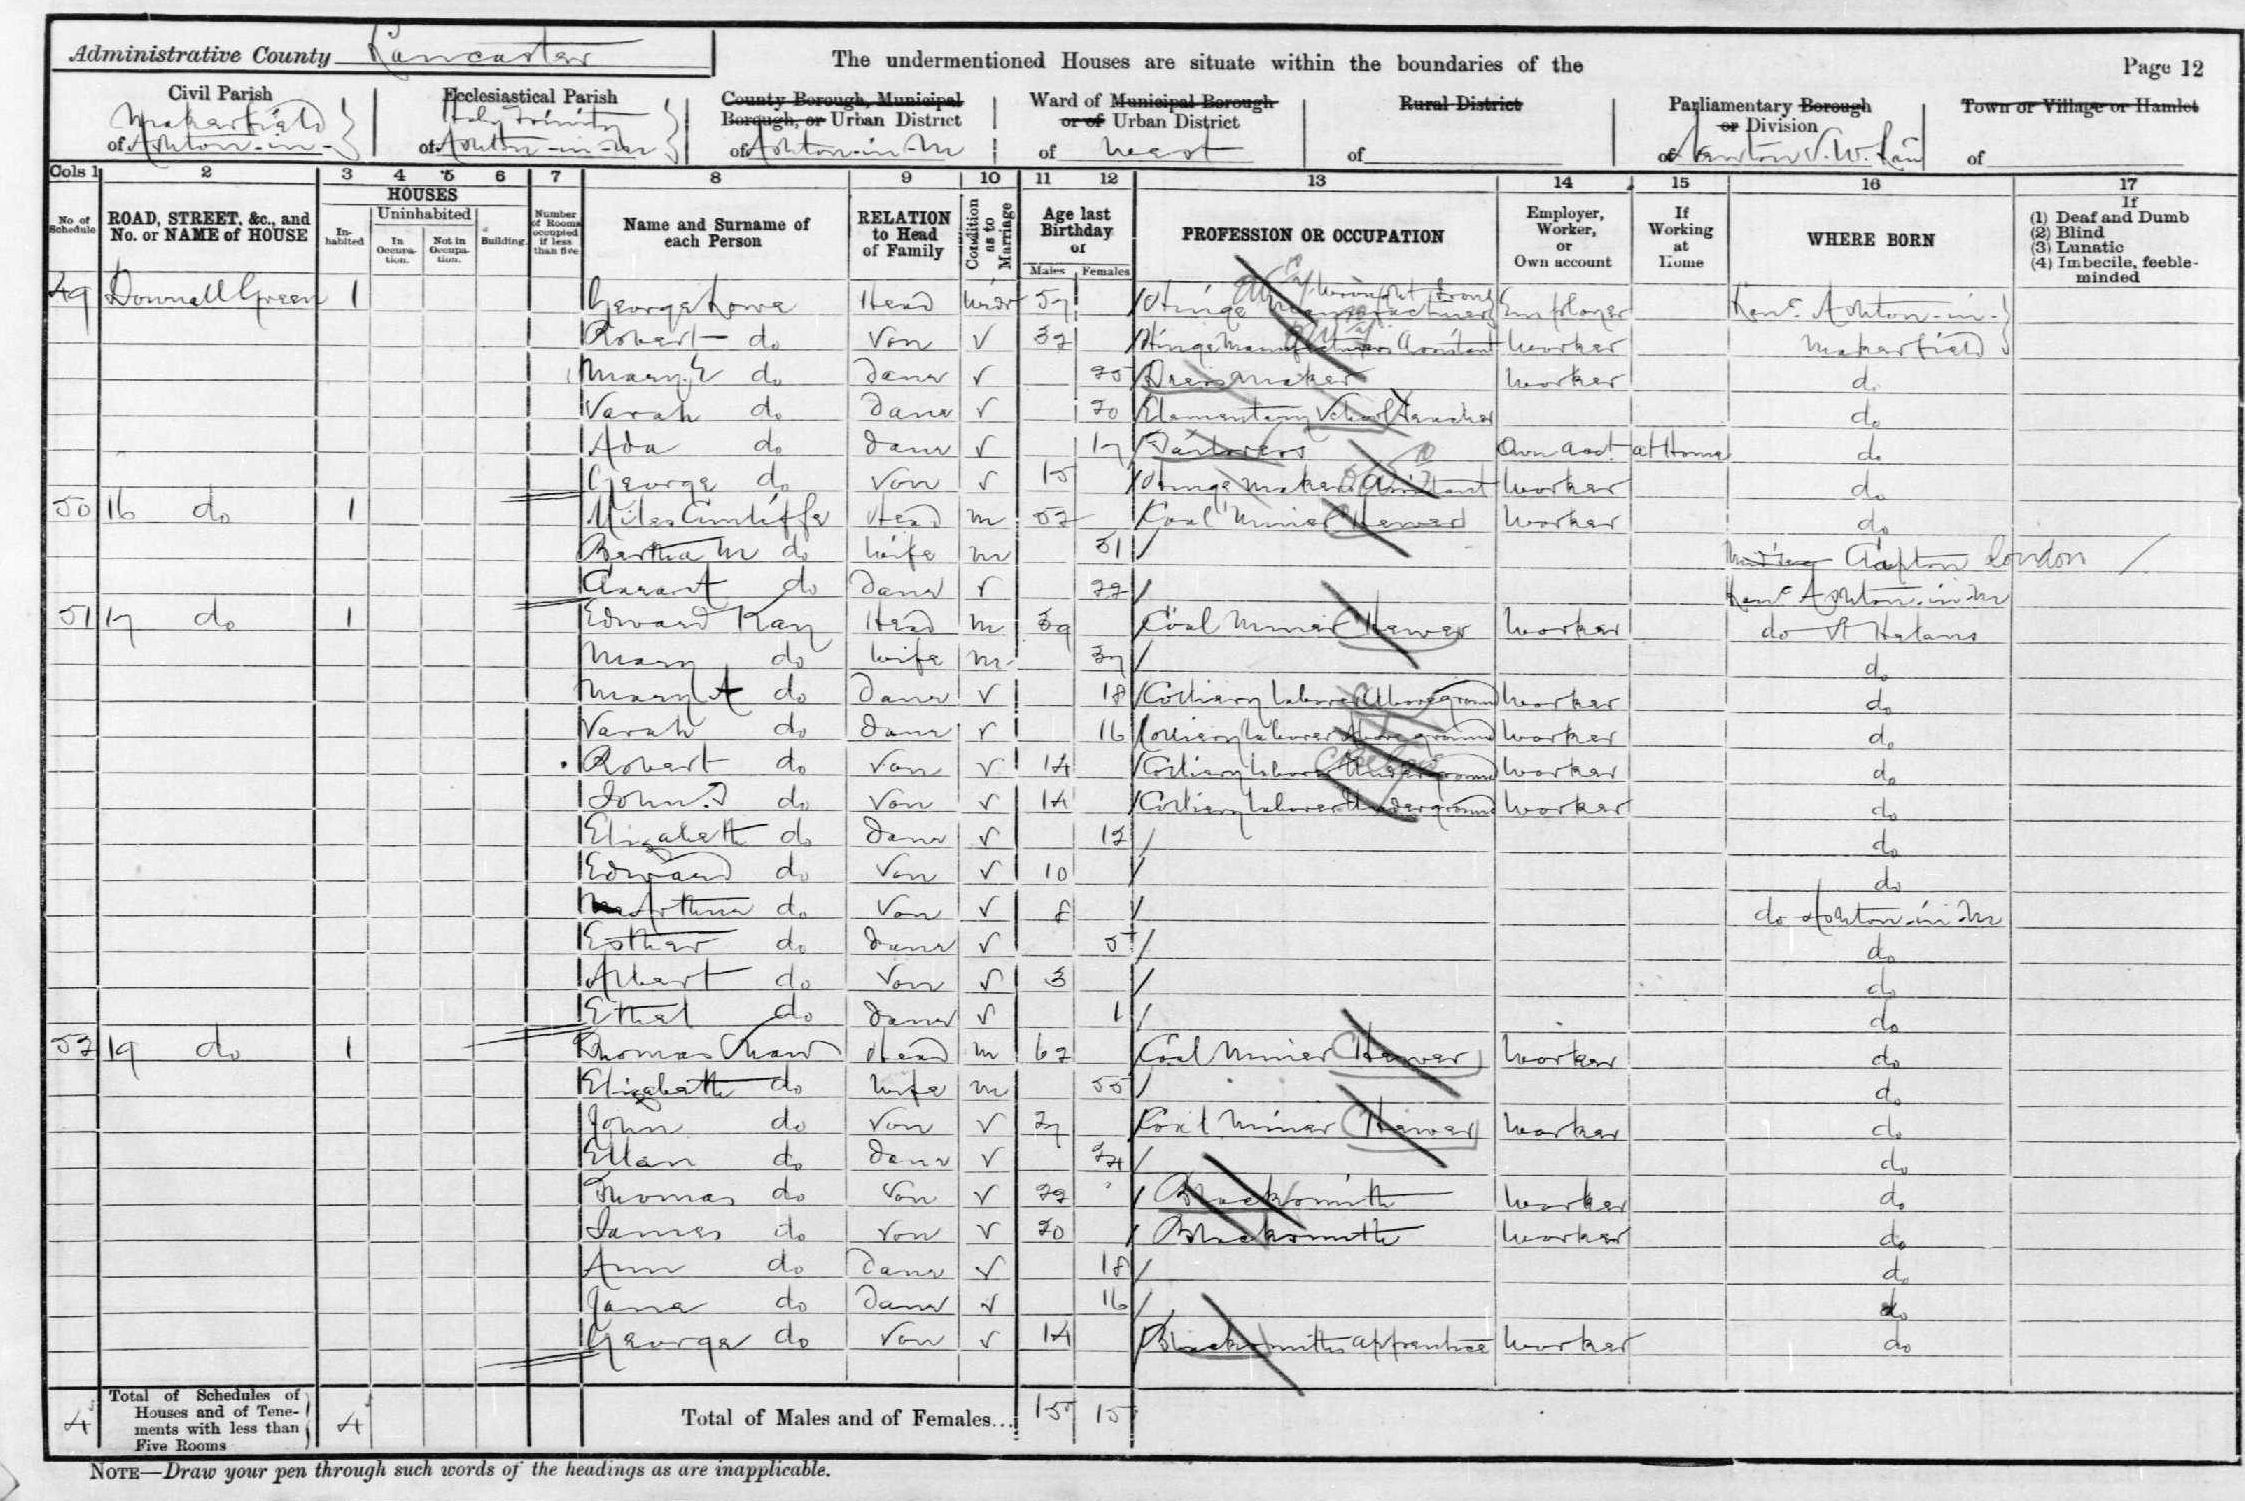 Administrative County Lancaster
The undermentioned Houses are situate within the boundaries of the
Page 12
Civil Parish
Makerfield
of Ashton-in-
Ecclesiastical Parish
Holy Trinity
of Ashton-in-M
County Borough, Municipal
Borough, or Urban District
of Ashton-in-M
Ward of Municipal Borough
or of Urban District
of West
Rural District
of
Parliamentary Borough
or Division
of Newton S.W. Lan
Town or Village or Hamlet
of
Cols 1 2 3 4 5 6 7 8 9 10 11 12 13 14 15 16 17
No of Schedule
ROAD, STREET, &c., and No. or NAME of HOUSE
HOUSES
Inhabited
Uninhabited
In Occupation.
Not in Occupation.
Building.
Number of Rooms occupied if less than five
Name and Surname of each Person
RELATION to Head of Family
Condition as to Marriage
Age last Birthday of
Males Females
PROFESSION OR OCCUPATION
Employer, Worker, or Own account
If Working at Home
WHERE BORN
If
(1) Deaf and Dumb
(2) Blind
(3) Lunatic
(4) Imbecile, feeble-minded
49 Downall Green 1 George Lowe Head Widr 57 Hinge Manufacturer Employer Lanc Ashton-in-
Robert do Son S 32 Hinge Manufacturers Assistant Worker Makerfield
Mary E do Daur S 25 Dressmaker Worker do
Sarah do Daur S 20 Elementary School Teacher do
Ada do Daur S 17 Tailoress Own Acct at Home do
George do Son S 15 Hinge Makers Assistant Worker do
50 16 do 1 Miles Cunliffe Head M 52 Coal Miner Hewer Worker do
Bertha M do Wife M 51 Clapton London
do Daur S 22 Lanc Ashton-in-M
51 17 do 1 Edward Kay Head M 39 Coal Miner Hewer Worker do St Helens
Mary do Wife M 37 do
Mary A do Daur S 18 Colliery Laborer Aboveground Worker do
Sarah do Daur S 16 Colliery Laborer Aboveground Worker do
Robert do Son S 14 Colliery Laborer Underground Worker do
John T do Son S 14 Colliery Laborer Underground Worker do
Elizabeth do Daur S 12 do
Edward do Son S 10 do
Arthur do Son S 8 do Ashton-in-M
Esther do Daur S 5 do
Albert do Son S 3 do
Ethel do Daur S 1 do
52 19 do 1 Thomas Shaw Head M 62 Coal Miner Hewer Worker do
Elizabeth do Wife M 55 do
John do Son S 27 Coal Miner Hewer Worker do
Ellen do Daur S 24 do
Thomas do Son S 22 Blacksmith Worker do
James do Son S 20 Blacksmith Worker do
Ann do Daur S 18 do
Jane do Daur S 16 do
George do Son S 14 Blacksmiths apprentice Worker do
4 Total of Schedules of Houses and of Tenements with less than Five Rooms 4 Total of Males and of Females... 15 15
NOTE—Draw your pen through such words of the headings as are inapplicable.